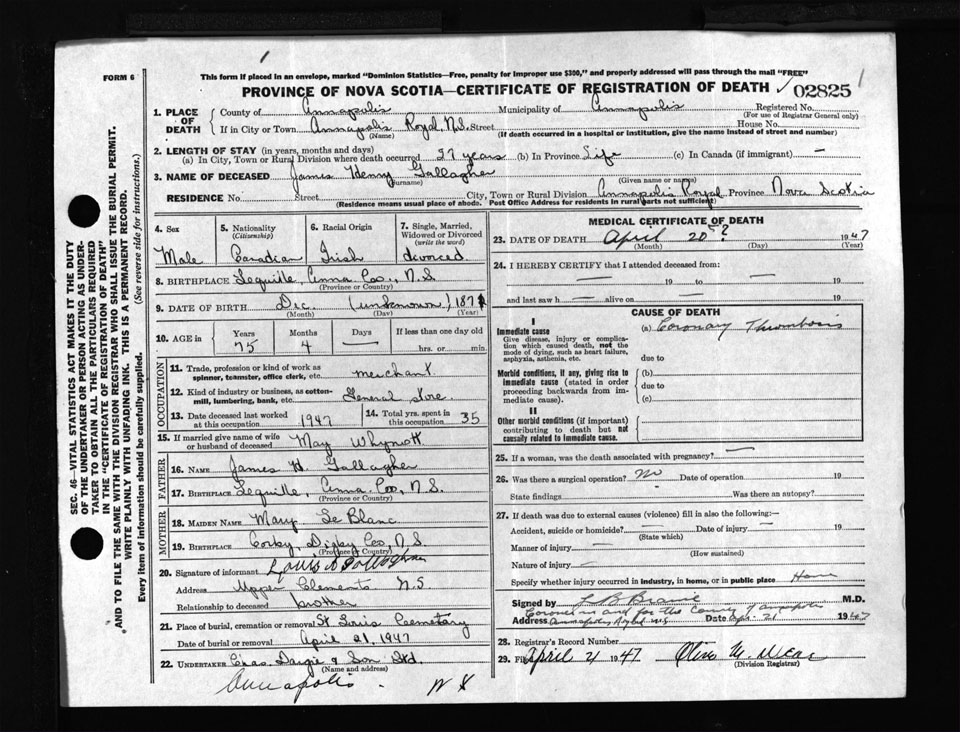 FORM 6
This form if placed in an envelope, marked "Dominion Statistics—Free, penalty for improper use $300," and properly addressed will pass through the mail "FREE"
PROVINCE OF NOVA SCOTIA—CERTIFICATE OF REGISTRATION OF DEATH 02825
1. PLACE OF DEATH
County of Annapolis Municipality of Annapolis Registered No.
(For use of Registrar General only)
If in City or Town Annapolis Royal, N.S. Street House No.
(Name) (If death occurred in a hospital or institution, give the name instead of street and number)
2. LENGTH OF STAY (in years, months and days)
(a) In City, Town or Rural Division where death occurred 27 years (b) In Province Life (c) In Canada (if immigrant) —
3. NAME OF DECEASED James Henry Gallagher
(Surname) (Given name or names)
RESIDENCE No. Street City, Town or Rural Division Annapolis Royal Province Nova Scotia
(Residence means usual place of abode. Post Office Address for residents in rural parts not sufficient)
4. Sex
Male
5. Nationality
(Citizenship)
Canadian
6. Racial Origin
Irish
7. Single, Married, Widowed or Divorced
(write the word)
divorced
8. BIRTHPLACE Lequille, Anna. Co., N.S.
9. DATE OF BIRTH Dec. (unknown) 1871
(Month) (Day) (Year)
10. AGE in
Years Months Days If less than one day old
75 4 — hrs. or min.
OCCUPATION
11. Trade, profession or kind of work as spinner, teamster, office clerk, etc. merchant.
12. Kind of industry or business, as cotton-mill, lumbering, bank, etc. General store.
13. Date deceased last worked at this occupation 1947
14. Total yrs. spent in this occupation 35
15. If married give name of wife or husband of deceased May Whynott
FATHER
16. NAME James H. Gallagher
17. BIRTHPLACE Lequille, Anna. Co., N.S.
(Province or Country)
MOTHER
18. MAIDEN NAME Mary Le Blanc
19. BIRTHPLACE Digby Co., N.S.
(Province or Country)
20. Signature of informant Louis Gallagher
Address Upper Clements N.S
Relationship to deceased brother
21. Place of burial, cremation or removal St Louis Cemetary
Date of burial or removal April 21, 1947
22. UNDERTAKER Chas. Dargie & Son Ltd.
(Name and address)
Annapolis N S
MEDICAL CERTIFICATE OF DEATH
23. DATE OF DEATH April 20th? 1947
(Month) (Day) (Year)
24. I HEREBY CERTIFY that I attended deceased from:
— 19 to — 19
and last saw h — alive on — 19
CAUSE OF DEATH
I
Immediate cause
Give disease, injury or complication which caused death, not the mode of dying, such as heart failure, asphyxia, asthenia, etc.
(a) Coronary Thrombosis
due to
Morbid conditions, if any, giving rise to immediate cause (stated in order proceeding backwards from immediate cause).
(b)
due to
(c)
II
Other morbid conditions (if important) contributing to death but not causally related to immediate cause.
25. If a woman, was the death associated with pregnancy? —
26. Was there a surgical operation? No Date of operation 19
State findings Was there an autopsy?
27. If death was due to external causes (violence) fill in also the following:—
Accident, suicide or homicide? — Date of injury — 19
(State which)
Manner of injury —
(How sustained)
Nature of injury —
Specify whether injury occurred in industry, in home, or in public place Home
Signed by L B Braine M.D.
Coroner in and for the County of Annapolis
Address Annapolis Royal N.S. Date Apr. 21 1947
28. Registrar's Record Number
29. Filed April 21 1947
(Division Registrar)
SEC. 46—VITAL STATISTICS ACT MAKES IT THE DUTY OF THE UNDERTAKER OR PERSON ACTING AS UNDERTAKER TO OBTAIN ALL THE PARTICULARS REQUIRED IN THE "CERTIFICATE OF REGISTRATION OF DEATH" AND TO FILE THE SAME WITH THE DIVISION REGISTRAR WHO SHALL ISSUE THE BURIAL PERMIT.
WRITE PLAINLY WITH UNFADING INK. THIS IS A PERMANENT RECORD.
Every item of information should be carefully supplied. (See reverse side for instructions.)